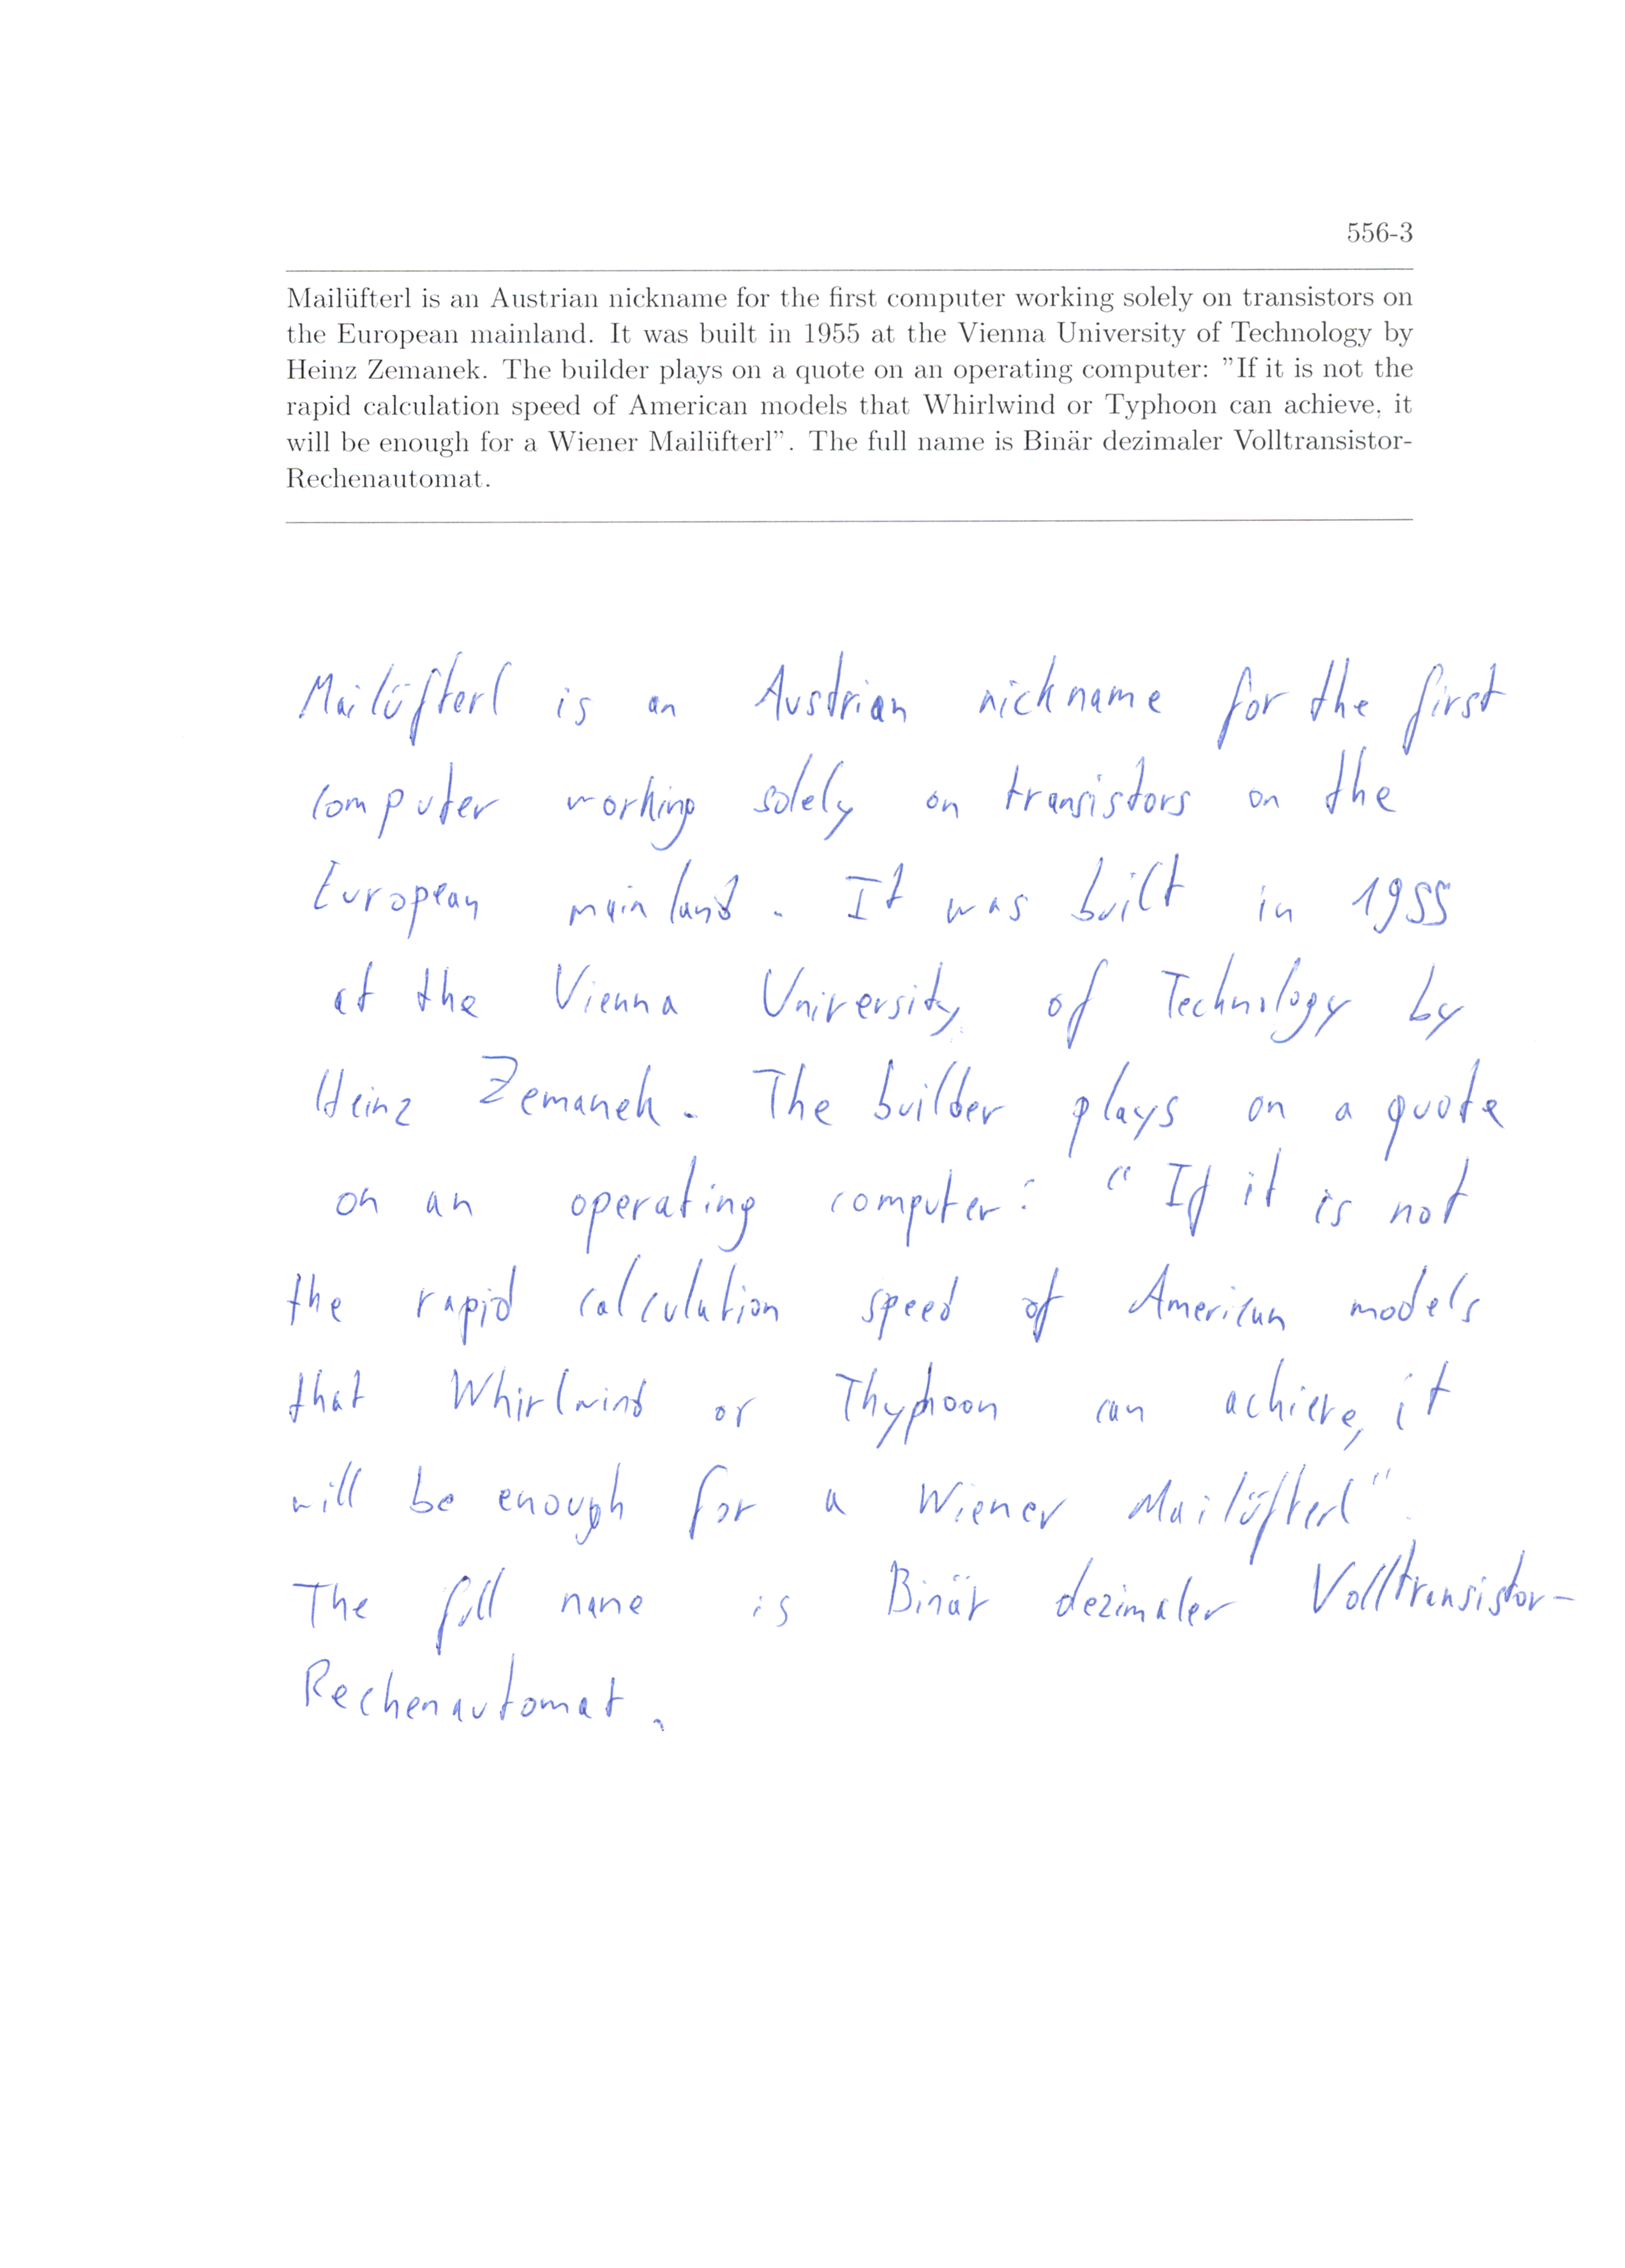 556-3
Mailüfterl is an Austrian nickname for the first computer working solely on transistors on
the European mainland. It was built in 1955 at the Vienna University of Technology by
Heinz Zemanek. The builder plays on a quote on an operating computer: ”If it is not the
rapid calculation speed of American models that Whirlwind or Typhoon can achieve, it
will be enough for a Wiener Mailüfterl”. The full name is Binär dezimaler Volltransistor-
Rechenautomat.
Mailüfterl is an Austrian nickname for the first
computer working solely on transistors on the
European mainland. It was built in 1955
at the Vienna University of Technology by
Heinz Zemanek. The builder plays on a quote
on an operating computer: “If it is not
the rapid calculation speed of American models
that Whirlwind or Thyphoon can achieve, it
will be enough for a Wiener Mailüfterl”.
The full name is Binär dezimaler Volltransistor-
Rechenautomat.